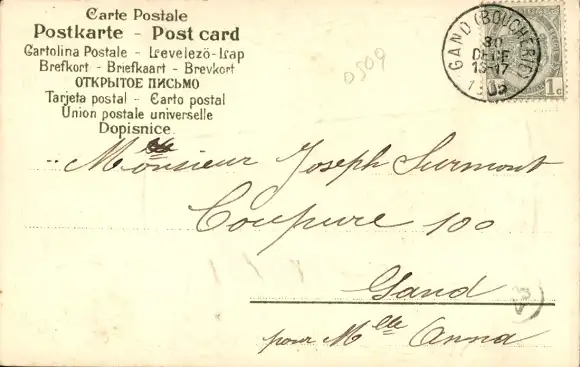 Carte Postale
Postkarte - Post card
Cartolina Postale - Levelező-Lap
Brefkort - Briefkaart - Brevkort
ОТКРЫТОЕ ПИСЬМО
Tarjeta postal - Carto postal
Union postale universelle
Dopisnice
GAND (BOUCHERIE)
30
DECE
13-17
1905
1c
0509
Monsieur Joseph Surmont
Coupure 100
Gand
pour Mlle Anna